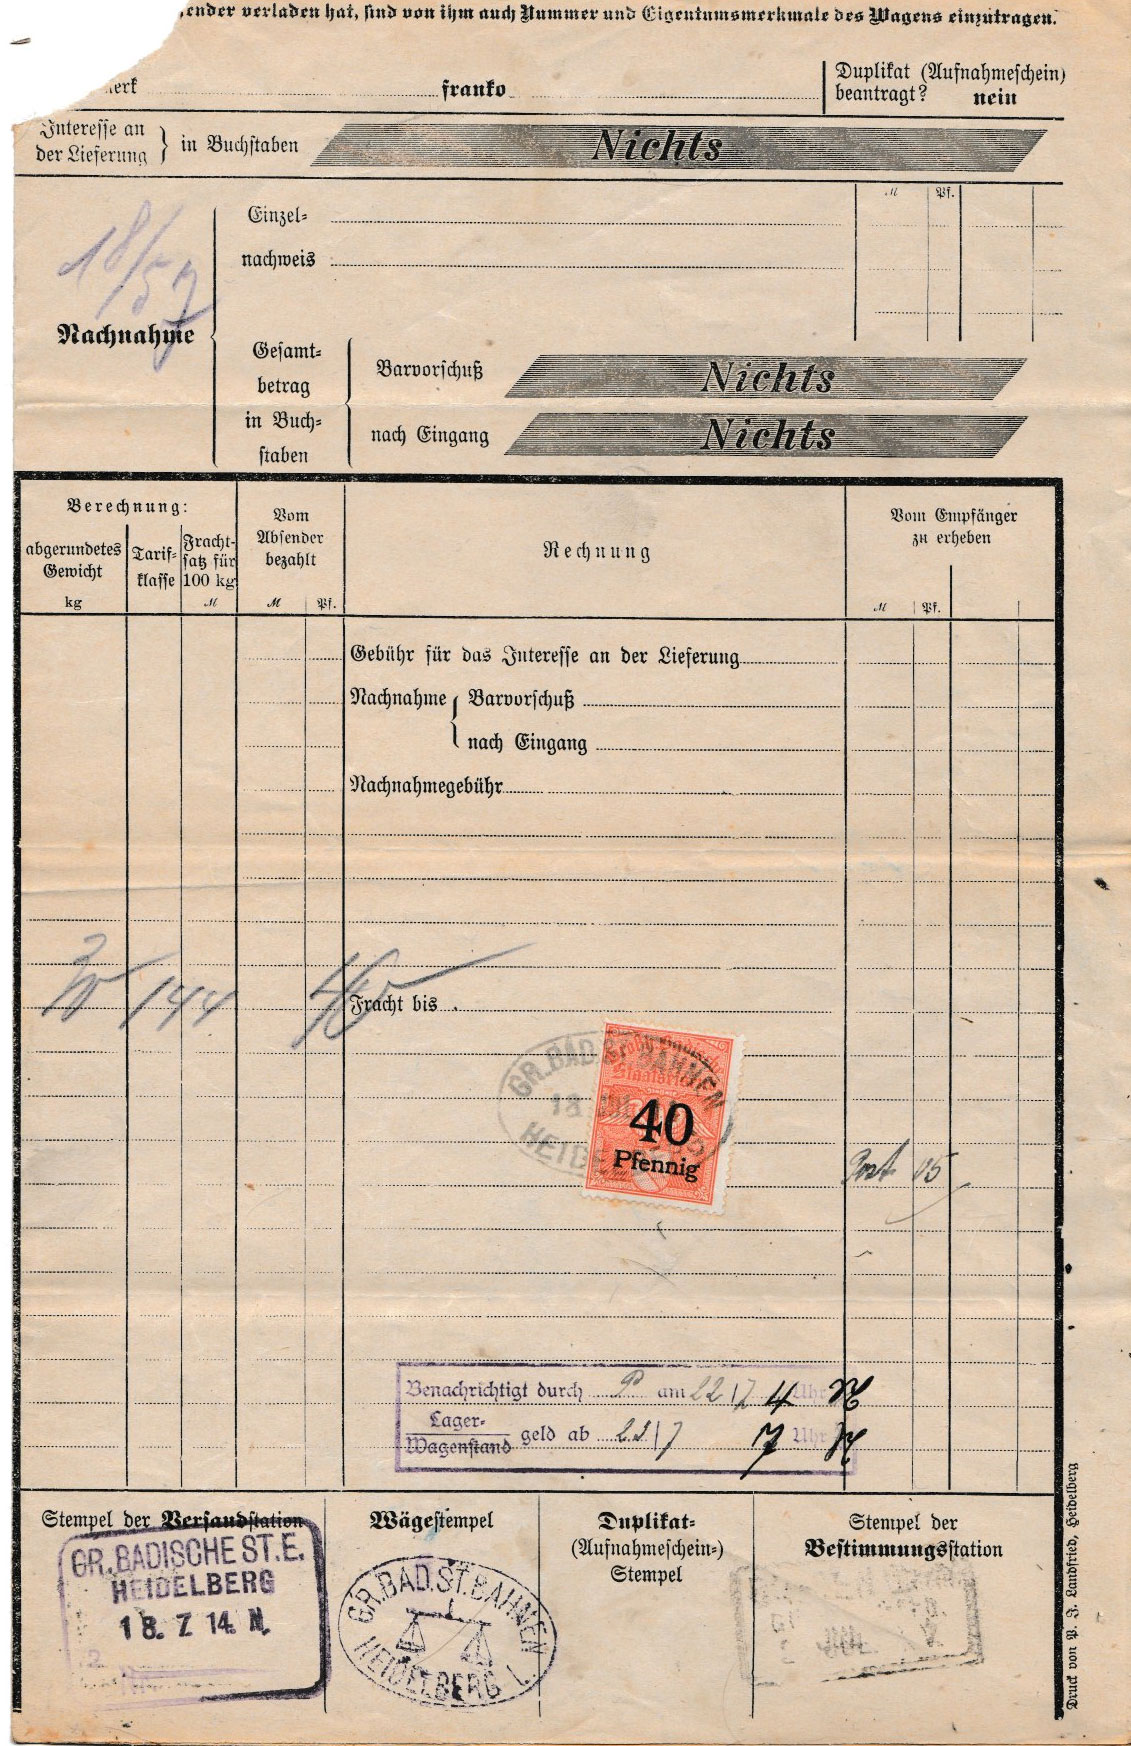 ender verladen hat, sind von ihm auch Nummer und Eigentumsmerkmale des Wagens einzutragen.
erk franko
Duplikat (Aufnahmeschein)
beantragt? nein
Interesse an
der Lieferung } in Buchstaben Nichts
M Pf.
18/57
Einzel-
nachweis
Nachnahme
Gesamt-
betrag
in Buch-
staben
Barvorschuß Nichts
nach Eingang Nichts
Berechnung:
abgerundetes
Gewicht
kg
Tarif-
klasse
Fracht-
satz für
100 kg
M
Vom
Absender
bezahlt
M Pf.
Rechnung
Vom Empfänger
zu erheben
M Pf.
Gebühr für das Interesse an der Lieferung
Nachnahme { Barvorschuß
nach Eingang
Nachnahmegebühr
20 144 40
Fracht bis
GR. BAD. ST. BAHNEN
18
HEIDELBERG
40
Pfennig
Port 05
Benachrichtigt durch P am 22/7 4 Uhr N
Lager-
Wagenstand geld ab 23/7 7 Uhr
Stempel der Versandstation
GR. BADISCHE ST. E.
HEIDELBERG
18. 7. 14. N.
Wägestempel
GR. BAD. ST. BAHNEN
HEIDELBERG L
Duplikat-
(Aufnahmeschein-)
Stempel
Stempel der
Bestimmungsstation
Druck von P. J. Landfried, Heidelberg